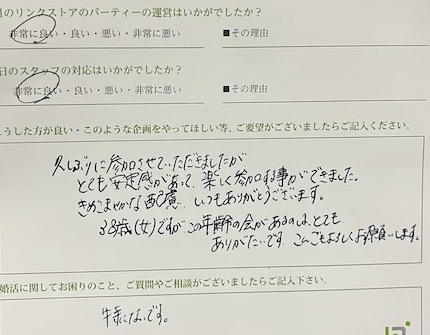 日のリンクストアのパーティーの運営はいかがでしたか？
非常に良い・良い・悪い・非常に悪い ■その理由
日のスタッフの対応はいかがでしたか？
非常に良い・良い・悪い・非常に悪い ■その理由
こうした方が良い・このような企画をやってほしい等、ご要望がございましたらご記入ください。
久しぶりに参加させていただきましたが
とても安定感があって、楽しく参加する事ができました。
きめこまやかな配慮、いつもありがとうございます。
38歳(女)ですがこの年齢の会があるのは、とても
ありがたいです。こんごもよろしくお願いします。
婚活に関してお困りのこと、ご質問やご相談がございましたらご記入下さい。
特にないです。